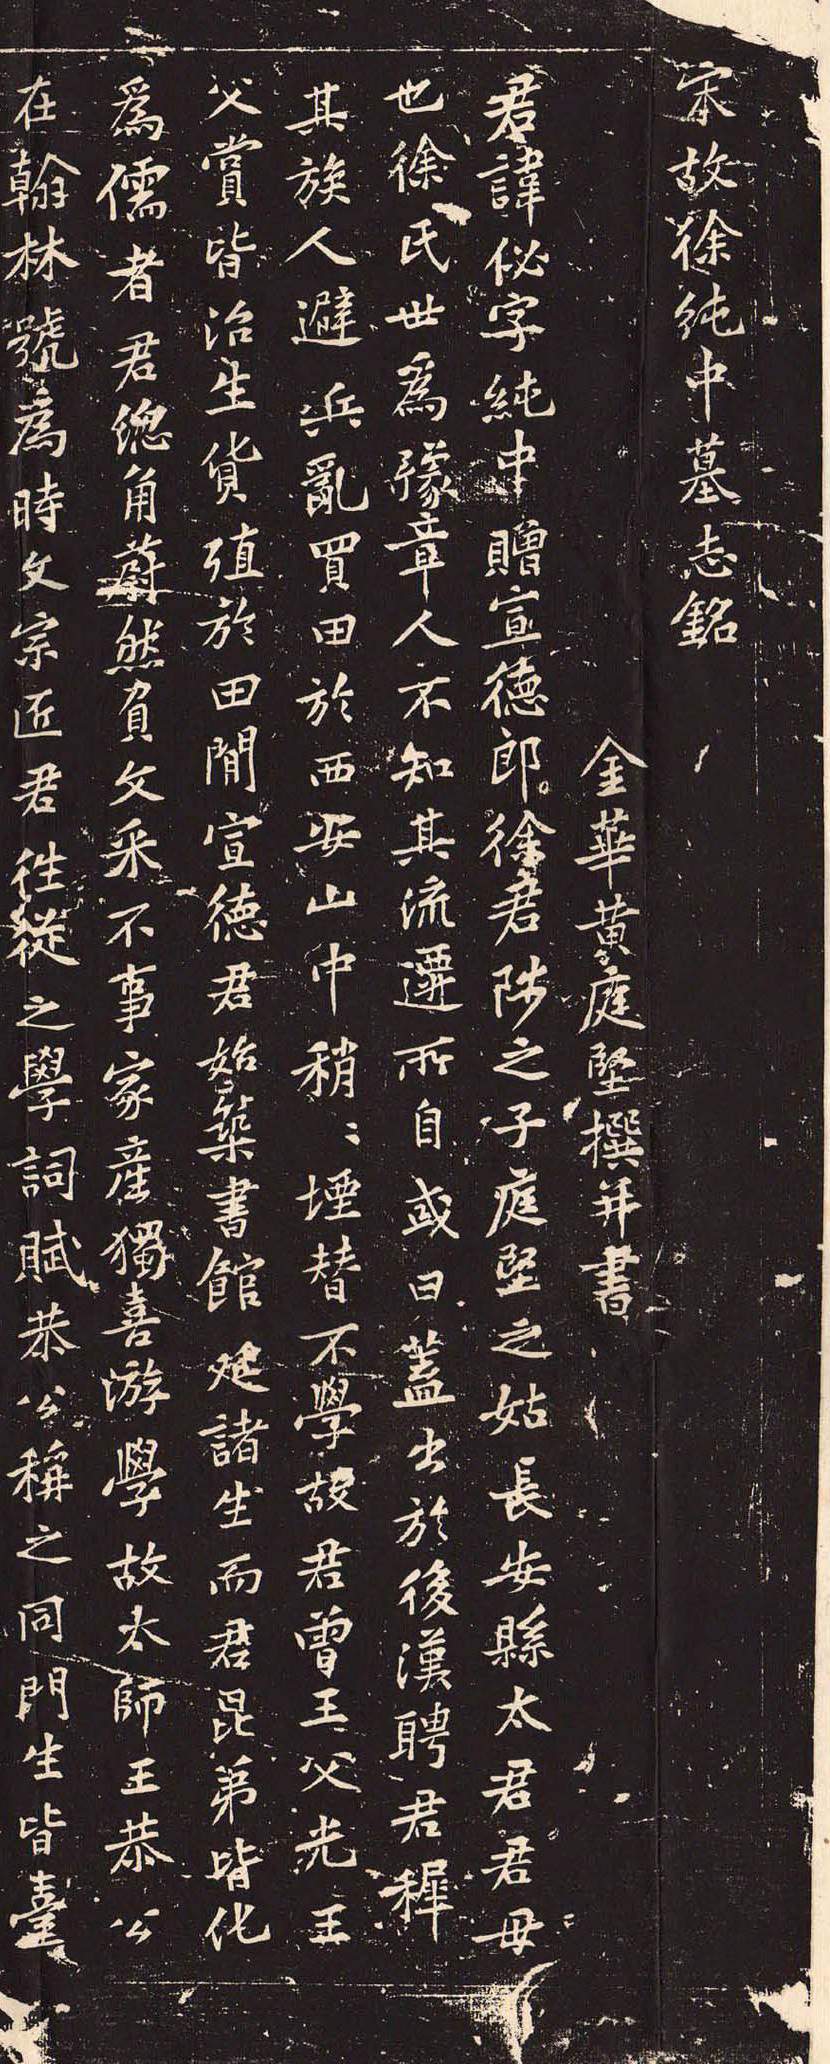 宋故徐純中墓志銘
金華黃庭堅撰并書
君諱佖字純中贈宣德郎徐君陟之子庭堅之姑長安縣太君君母
也徐氏世爲豫章人不知其流遷所自或曰蓋出於後漢聘君穉
其族人避兵亂買田於西安山中稍〻堙替不學故君曾王父光王
父賞皆治生貨殖於田閒宣德君始築書館延諸生而君昆弟皆化
爲儒者君總角蔚然負文采不事家產獨喜游學故太師王恭公
在翰林號爲時文宗匠君徃從之學詞賦恭公稱之同門生皆臺